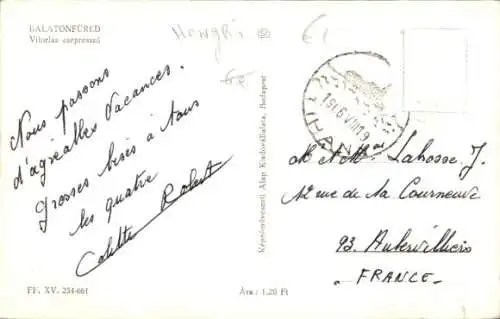 BALATONFÜRED
Vitorlás eszpresszó
Hongrie
Nous passons
d'agréables vacances.
Grosses bises à tous
les quatre
Colette Robert
Képzőművészeti Alap Kiadóvállalata, Budapest
TIHANY
Mr et Mme Lahosse. J.
rue de La Courneuve
93. Aubervilliers
- FRANCE -
FF. XV. 254-661
Ára: 1,20 Ft